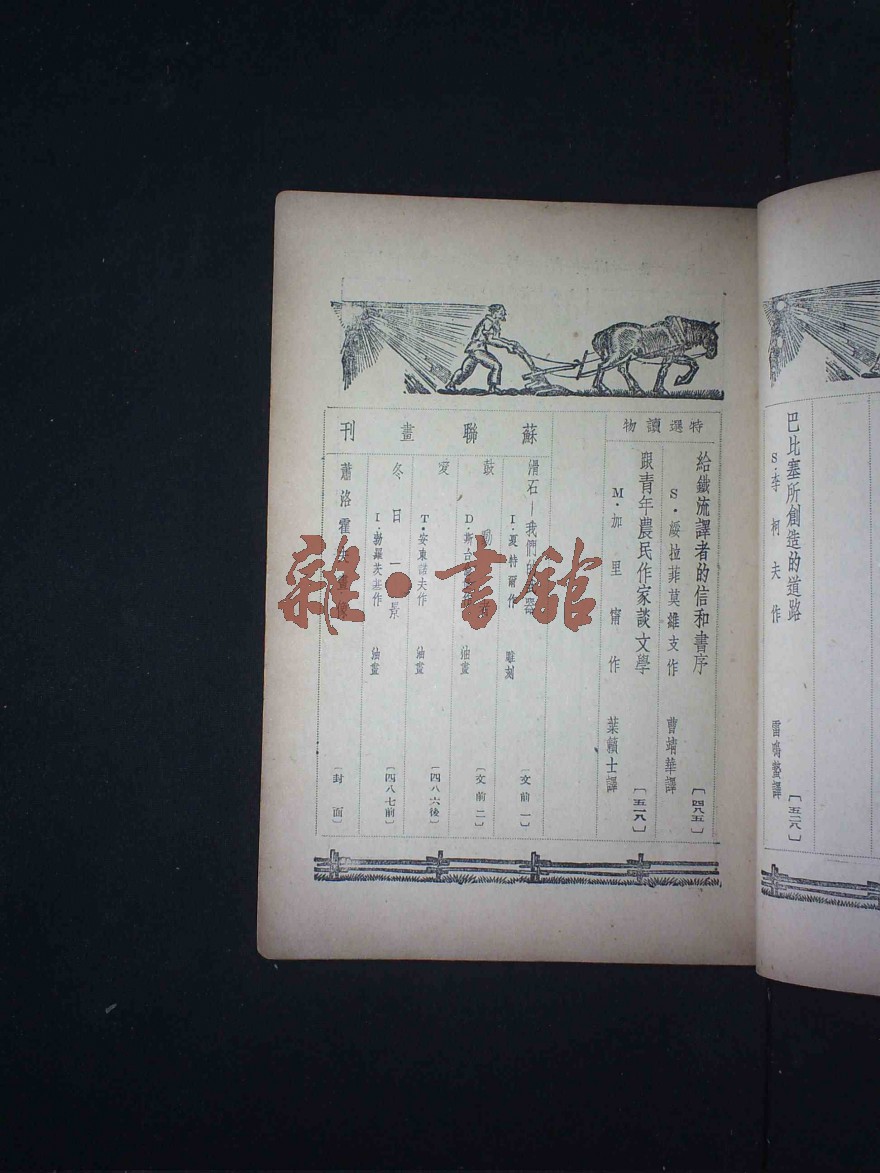 巴比塞所創造的道路
S·李柯夫作
雷鳴蟄譯
〔五二八〕
特選讀物
給鐵流譯者的信和書序
S·綏拉菲莫維支作
曹靖華譯
〔四八五〕
跟青年農民作家談文學
M·加里甯作
葉籟士譯
〔五一八〕
蘇聯畫刊
滑石—我們的武器
I·夏特爾作
雕刻
〔文前一〕
鼓動者
D·斯台
油畫
〔文前二〕
夏
T·安東諾夫作
油畫
〔四八六後〕
冬日一景
I·勃羅茨基作
油畫
〔四八七前〕
蕭洛霍夫畫像
〔封面〕
雜·書館